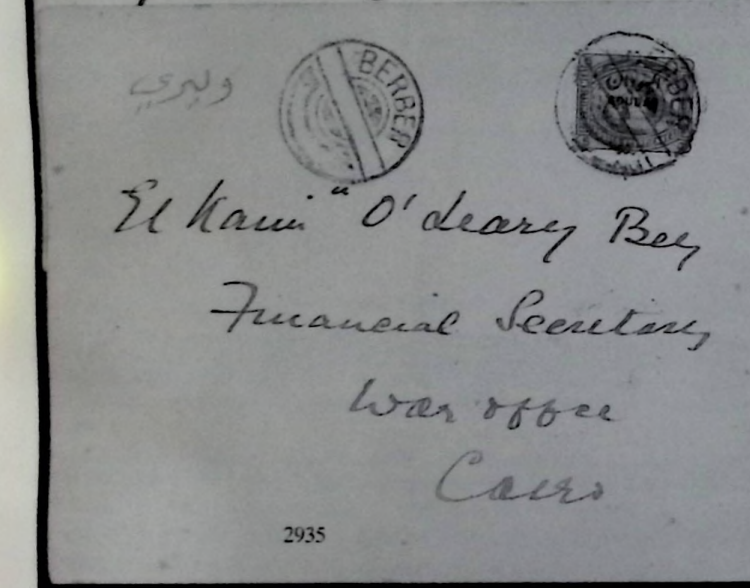 BERBER
El Kaim" O'Leary Bey
Financial Secretary
War Office
Cairo
2935